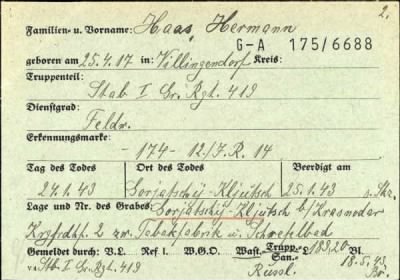 2.
Familien- u. Vorname: Haas, Hermann
G-A 175/6688
geboren am 25.4.17 in: Villingendorf Kreis:
Truppenteil:
Stab I Gr. Rgt. 419
Dienstgrad:
Feldw.
Erkennungsmarke:
-174- 12./J.R. 14
Tag des Todes Ort des Todes Beerdigt am
24.1.43 Gorjatschij-Kljutsch 25.1.43
Lage und Nr. des Grabes: Gorjatschij-Kljutsch b/Krasnodar
Krgfrdhf. 2 zw. Tabakfabrik u. Schwefelbad
Gemeldet durch: V.L. Ref I. W.G.O. Wast. Trupp. San. 18920 Bl.
Stb. I Gr. Rgt. 419 Russl. 18.5.43